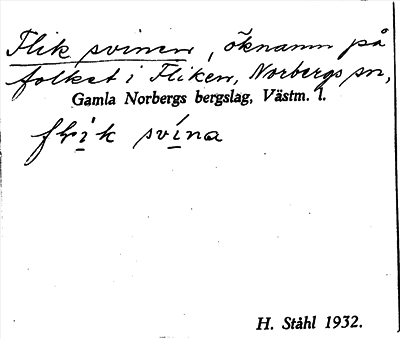 Flik svinen, öknamn på
folket i Fliken, Norbergs sn,
Gamla Norbergs bergslag, Västm. l.
flik svína
H. Ståhl 1932.